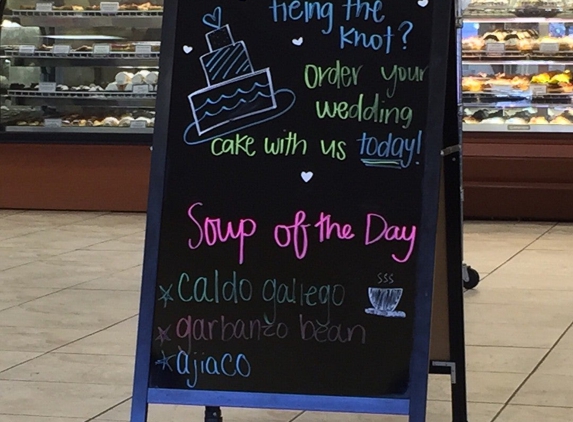 Tieing the
Knot?
Order your
wedding
cake with us today!
Soup of the Day
caldo gallego
garbanzo bean
ajiaco